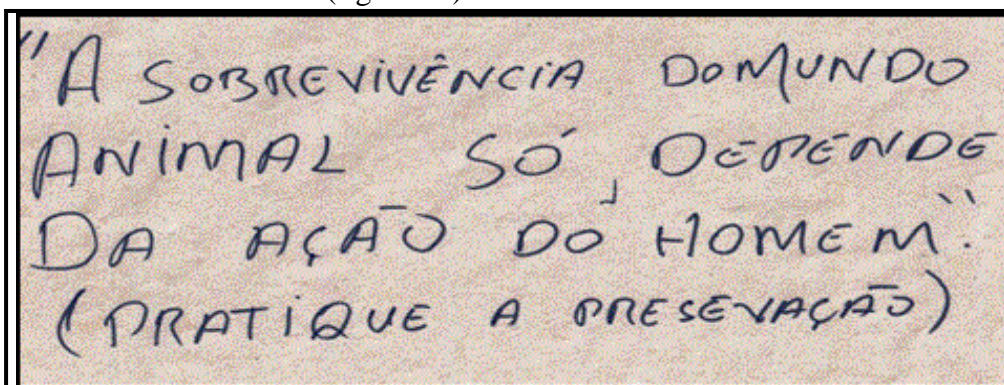 "A SOBREVIVÊNCIA DO MUNDO
ANIMAL SÓ DEPENDE
DA AÇÃO DO HOMEM".
(PRATIQUE A PRESEVAÇÃO)